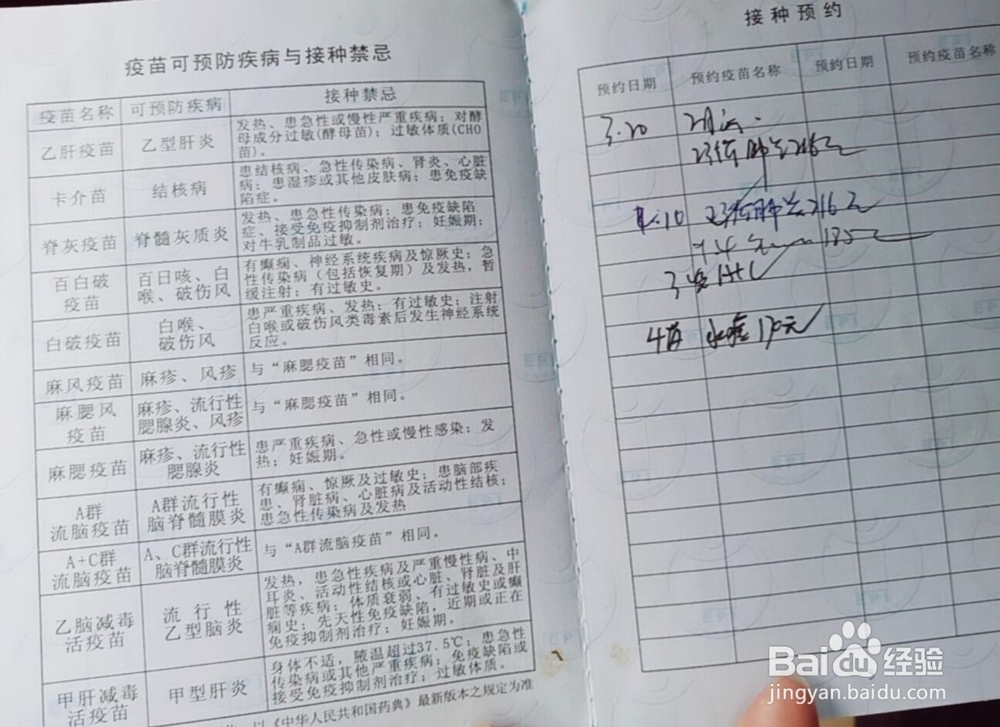 疫苗可预防疾病与接种禁忌
疫苗名称 可预防疾病 接种禁忌
乙肝疫苗 乙型肝炎 发热、患急性或慢性严重疾病；对酵
母成分过敏(酵母苗)；过敏体质(CHO
苗)。
卡介苗 结核病 患结核病、急性传染病、肾炎、心脏
病；患湿疹或其他皮肤病；患免疫缺
陷症。
脊灰疫苗 脊髓灰质炎 发热、患急性传染病；患免疫缺陷
症、接受免疫抑制剂治疗；妊娠期；
对牛乳制品过敏。
百白破
疫苗 百日咳、白
喉、破伤风 有癫痫、神经系统疾病及惊厥史；急
性传染病（包括恢复期）及发热，暂
缓注射；有过敏史。
白破疫苗 白喉、
破伤风 患严重疾病、发热；有过敏史；注射
白喉或破伤风类毒素后发生神经系统
反应。
麻风疫苗 麻疹、风疹 与“麻腮疫苗”相同。
麻腮风
疫苗 麻疹、流行性
腮腺炎、风疹 与“麻腮疫苗”相同。
麻腮疫苗 麻疹、流行性
腮腺炎 患严重疾病、急性或慢性感染；发
热；妊娠期。
A群
流脑疫苗 A群流行性
脑脊髓膜炎 有癫痫、惊厥及过敏史；患脑部疾
患、肾脏病、心脏病及活动性结核；
患急性传染病及发热
A+C群
流脑疫苗 A、C群流行性
脑脊髓膜炎 与“A群流脑疫苗”相同。
乙脑减毒
活疫苗 流行性
乙型脑炎 发热，患急性疾病及严重慢性病、中
耳炎、活动性结核或心脏、肾脏及肝
脏等疾病；体质衰弱、有过敏史或癫
痫史；先天性免疫缺陷，近期或正在
免疫抑制剂治疗；妊娠期。
甲肝减毒
活疫苗 甲型肝炎 身体不适，腋温超过37.5℃；患急性
传染病或其他严重疾病；免疫缺陷或
接受免疫抑制剂治疗；过敏体质。
以《中华人民共和国药典》最新版本之规定为准
接种预约
预约日期 预约疫苗名称 预约日期 预约疫苗名称
3.20
23价肺炎216元
4.10 23价肺炎216元
185元
水痘170元
Baidu经验
jingyan.baidu.com